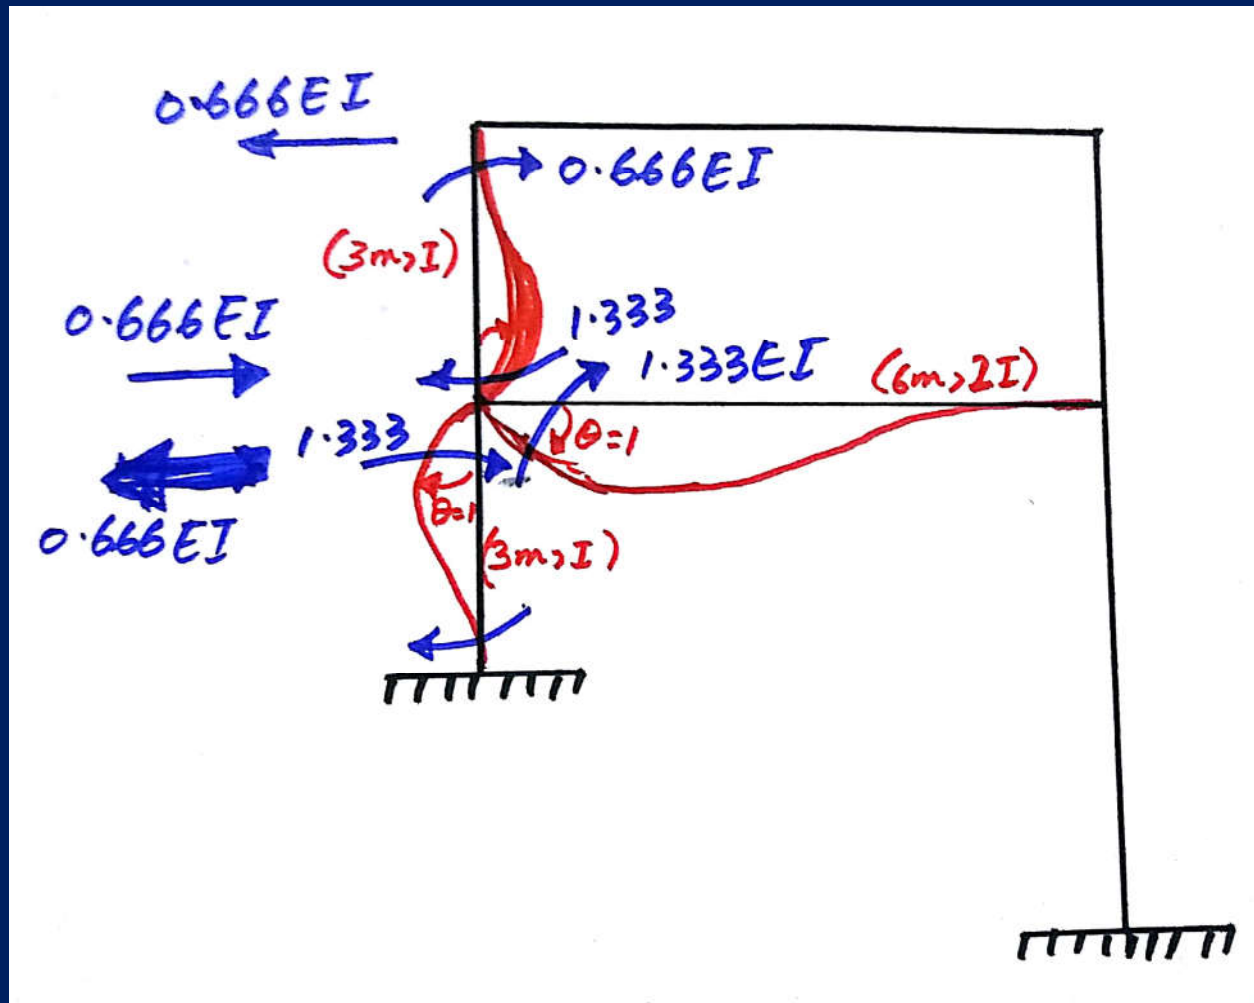 0.666EI
0.666EI
(3m,I)
0.666EI
1.333
1.333EI
(6m,2I)
1.333
θ=1
θ=1
0.666EI
(3m,I)